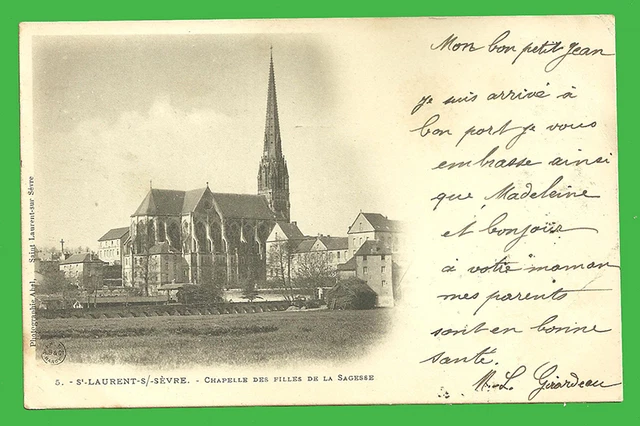 Mon bon petit Jean
je suis arrivé à
bon port je vous
embrasse ainsi
que Madeleine
et bonjour
à votre maman
mes parents
sont en bonne
santé.
M.-L. Girardeau
Photographie Abel. Saint Laurent-sur Sèvre
5. - St-LAURENT-S/-SÈVRE. - CHAPELLE DES FILLES DE LA SAGESSE